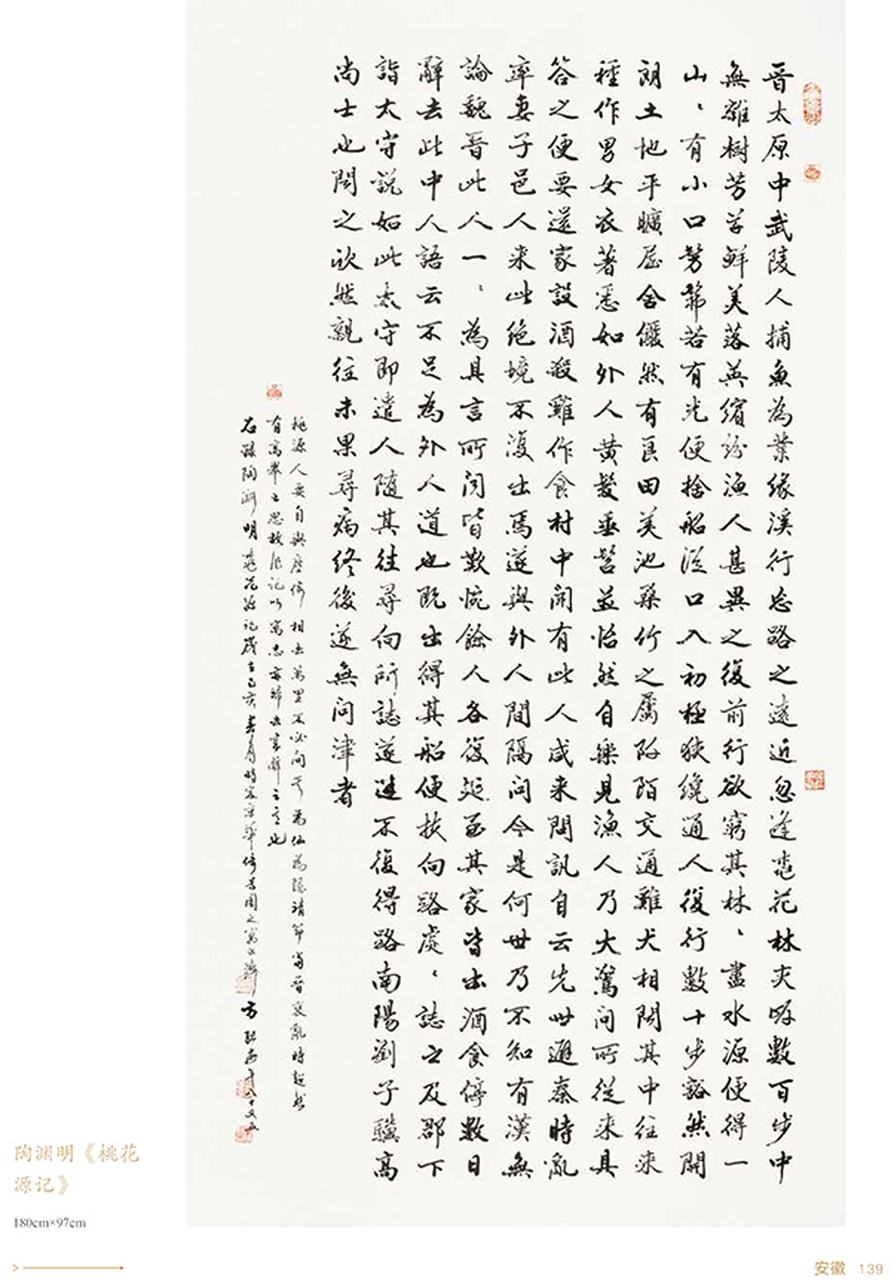 晋太原中武陵人捕魚為業緣溪行忘路之遠近忽逢桃花林夹岸數百步中
無雜樹芳草鮮美落英繽紛漁人甚異之復前行欲窮其林〻盡水源便得一
山〻有小口髣髴若有光便捨船從口入初極狹纔通人復行數十步豁然開
朗土地平曠屋舍儼然有良田美池桑竹之屬阡陌交通雞犬相聞其中往来
種作男女衣著悉如外人黄髮垂髫並怡然自樂見漁人乃大驚問所從来具
答之便要還家設酒殺雞作食村中聞有此人咸来問訊自云先世避秦時亂
率妻子邑人来此绝境不復出焉遂與外人間隔问今是何世乃不知有漢無
論魏晋此人一〻為具言所闻皆歎惋餘人各復延至其家皆出酒食停數日
辭去此中人語云不足為外人道也既出得其船便扶向路處〻誌之及郡下
詣太守説如此太守即遣人随其往尋向所誌遂迷不復得路南陽劉子驥高
尚士也聞之欣然親往未果尋病終後遂無问津者
桃源人要自與塵俗相去萬里不必问其為仙為隐靖節當晋衰亂時超然
有高舉之思故作记以寓志亦归去来辭之意也
右録陶渊明桃花源记歲在己亥春月時客京華
陶渊明《桃花
源记》
180cm×97cm
安徽 139